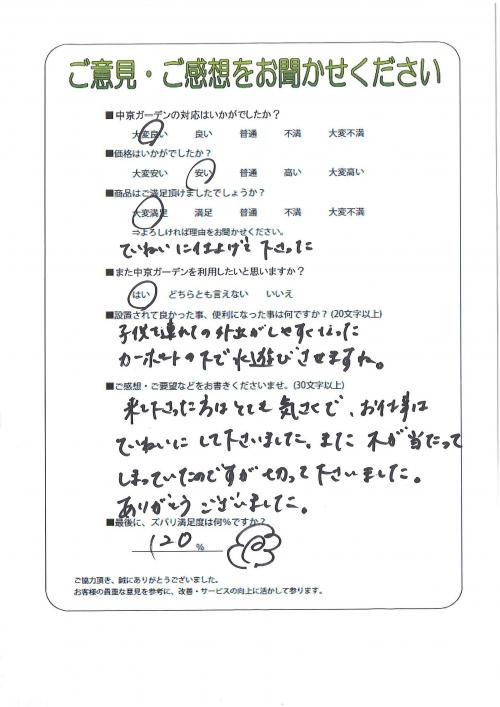 ご意見・ご感想をお聞かせください
■中京ガーデンの対応はいかがでしたか？
大変良い 良い 普通 不満 大変不満
■価格はいかがでしたか？
大変安い 安い 普通 高い 大変高い
■商品はご満足頂けましたでしょうか？
大変満足 満足 普通 不満 大変不満
⇒よろしければ理由をお聞かせください。
ていねいに仕上げて下さった
■また中京ガーデンを利用したいと思いますか？
はい どちらとも言えない いいえ
■設置されて良かった事、便利になった事は何ですか？(20文字以上)
子供を連れての外出がしやすくなった
カーポートの下で水遊びさせますね。
■ご感想・ご要望などをお書きくださいませ。(30文字以上)
来て下さった方はとても気さくで、お仕事は
ていねいにして下さいました。また木が当たって
しまっていたのですが切って下さいました。
ありがとうございました。
■最後に、ズバリ満足度は何％ですか？
120 %
ご協力頂き、誠にありがとうございました。
お客様の貴重な意見を参考に、改善・サービスの向上に活かして参ります。